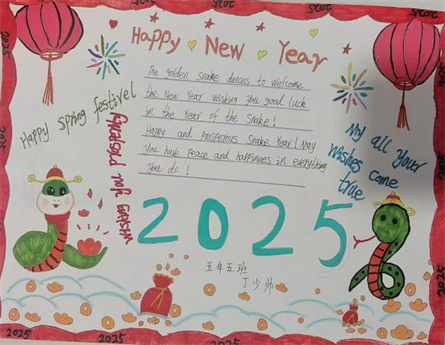 Happy New Year
The golden snake dances to welcome
the New Year wishing you good luck
in the Year of the Snake!
Happy and prosperous Snake Year! May
You have peace and happiness in everything
You do!
Happy Spring festivel
wishing you prosperity
My all Your
wishes come
true
2025
五年五班
丁少帅
2025
2025
2025
2025
2025
2025
2025